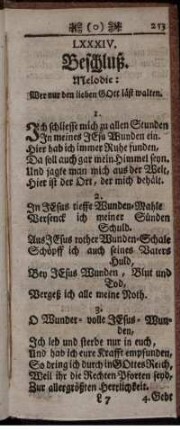 (o) 253
LXXXIV.
Beschluß.
Melodie:
Wer nur den lieben GOtt läst walten.
1.
Ich schliesse mich zu allen Stunden
In meines JEsu Wunden ein.
Hier hab ich immer Ruhe funden,
Da soll auch gar mein Himmel seyn.
Und jagte man mich aus der Welt,
Hier ist der Ort, der mich behält.
2.
In JEsus tieffe Wunden-Mahle
Versenck ich meiner Sünden
Schuld.
Aus JEsus rother Wunden-Schale
Schöpff ich auch seines Vaters
Huld,
Bey JEsus Wunden, Blut und
Tod,
Vergeß ich alle meine Noth.
3.
O Wunder-volle JEsus-Wun-
den,
Ich leb und sterbe nur in euch,
Und hab ich eure Krafft empfunden,
So dring ich durch in GOttes Reich,
Weil ihr die Rechten Pforten seyd,
Zur allergrößten Herrlichkeit.
L 7 4. Gebt